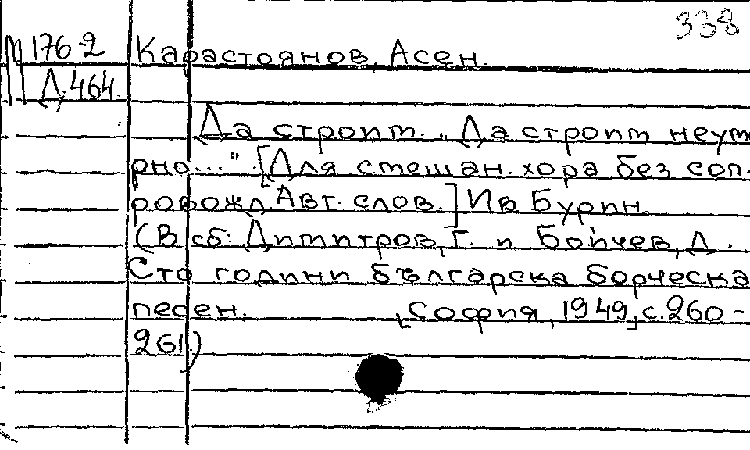 338
М 176 2 Карастоянов, Асен.
Д.464.
Да строим. „Да строим неум
рно..." [Для смешан. хора без соп-
ровожд. Авт. слов.] Ив Бурин
(В сб: Димитров, Г. и Бойчев, Д.
Сто години българска борческа
песен. [София, 1949] с.260-
261)